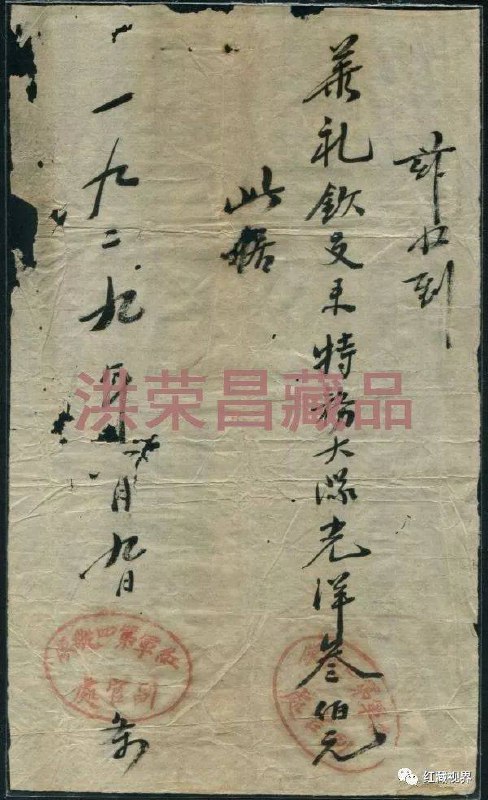 收到
葉礼欽交来特務大隊光洋叁佰元
此据
一九二九年
月九日
条
紅軍第四縱隊
副官處
洪荣昌藏品
红藏视界